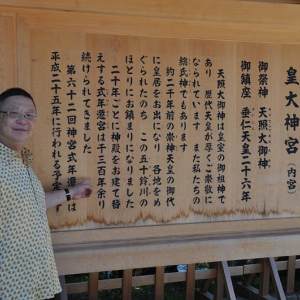 皇大神宮（内宮）
御祭神　天照大御神
御鎮座　垂仁天皇二十六年
天照大御神は皇室の御祖神で
あり　歴代天皇が厚くご崇敬に
なられています　また私たちの
総氏神でもあります
約二千年前の崇神天皇の御代
に皇居をお出になり　各地をめ
ぐられたのち　この五十鈴川の
ほとりにお鎮まりになりました
二十年ごとに神殿をお建て替
えする式年遷宮は千三百年余り
続けられてきました
第六十二回神宮式年遷
平成二十五年に行われる予定です